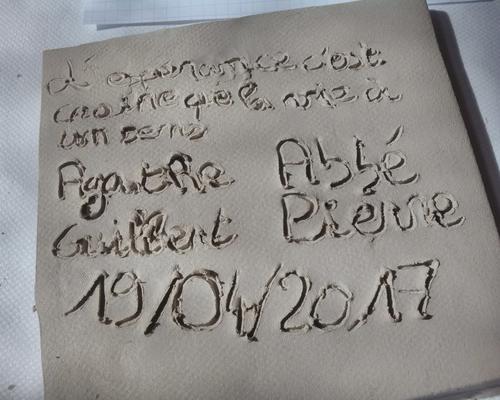 L'espérance c'est
croire que la vie à
un sens
Agathe Abbé
Guillent Pierre
19/04/2017